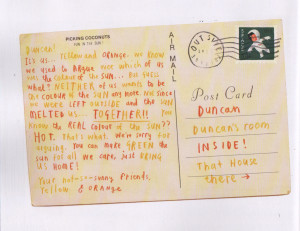 PICKING COCONUTS
Duncan!
It's us... Yellow and Orange. We know
we used to argue over which of us
was the colour of the sun... but guess
what? NEITHER of us wants to be
the colour of the sun any more. Not since
we were LEFT OUTSIDE and the sun
MELTED us... TOGETHER!! You
know the REAL colour of the sun??
HOT. That's what. We're sorry for
arguing. You can make GREEN the
sun for all we care, just BRING
US HOME!
Your not-so-sunny friends,
Yellow & Orange
AIR MAIL
Post Card
Duncan
Duncan's room
INSIDE!
That House
there →